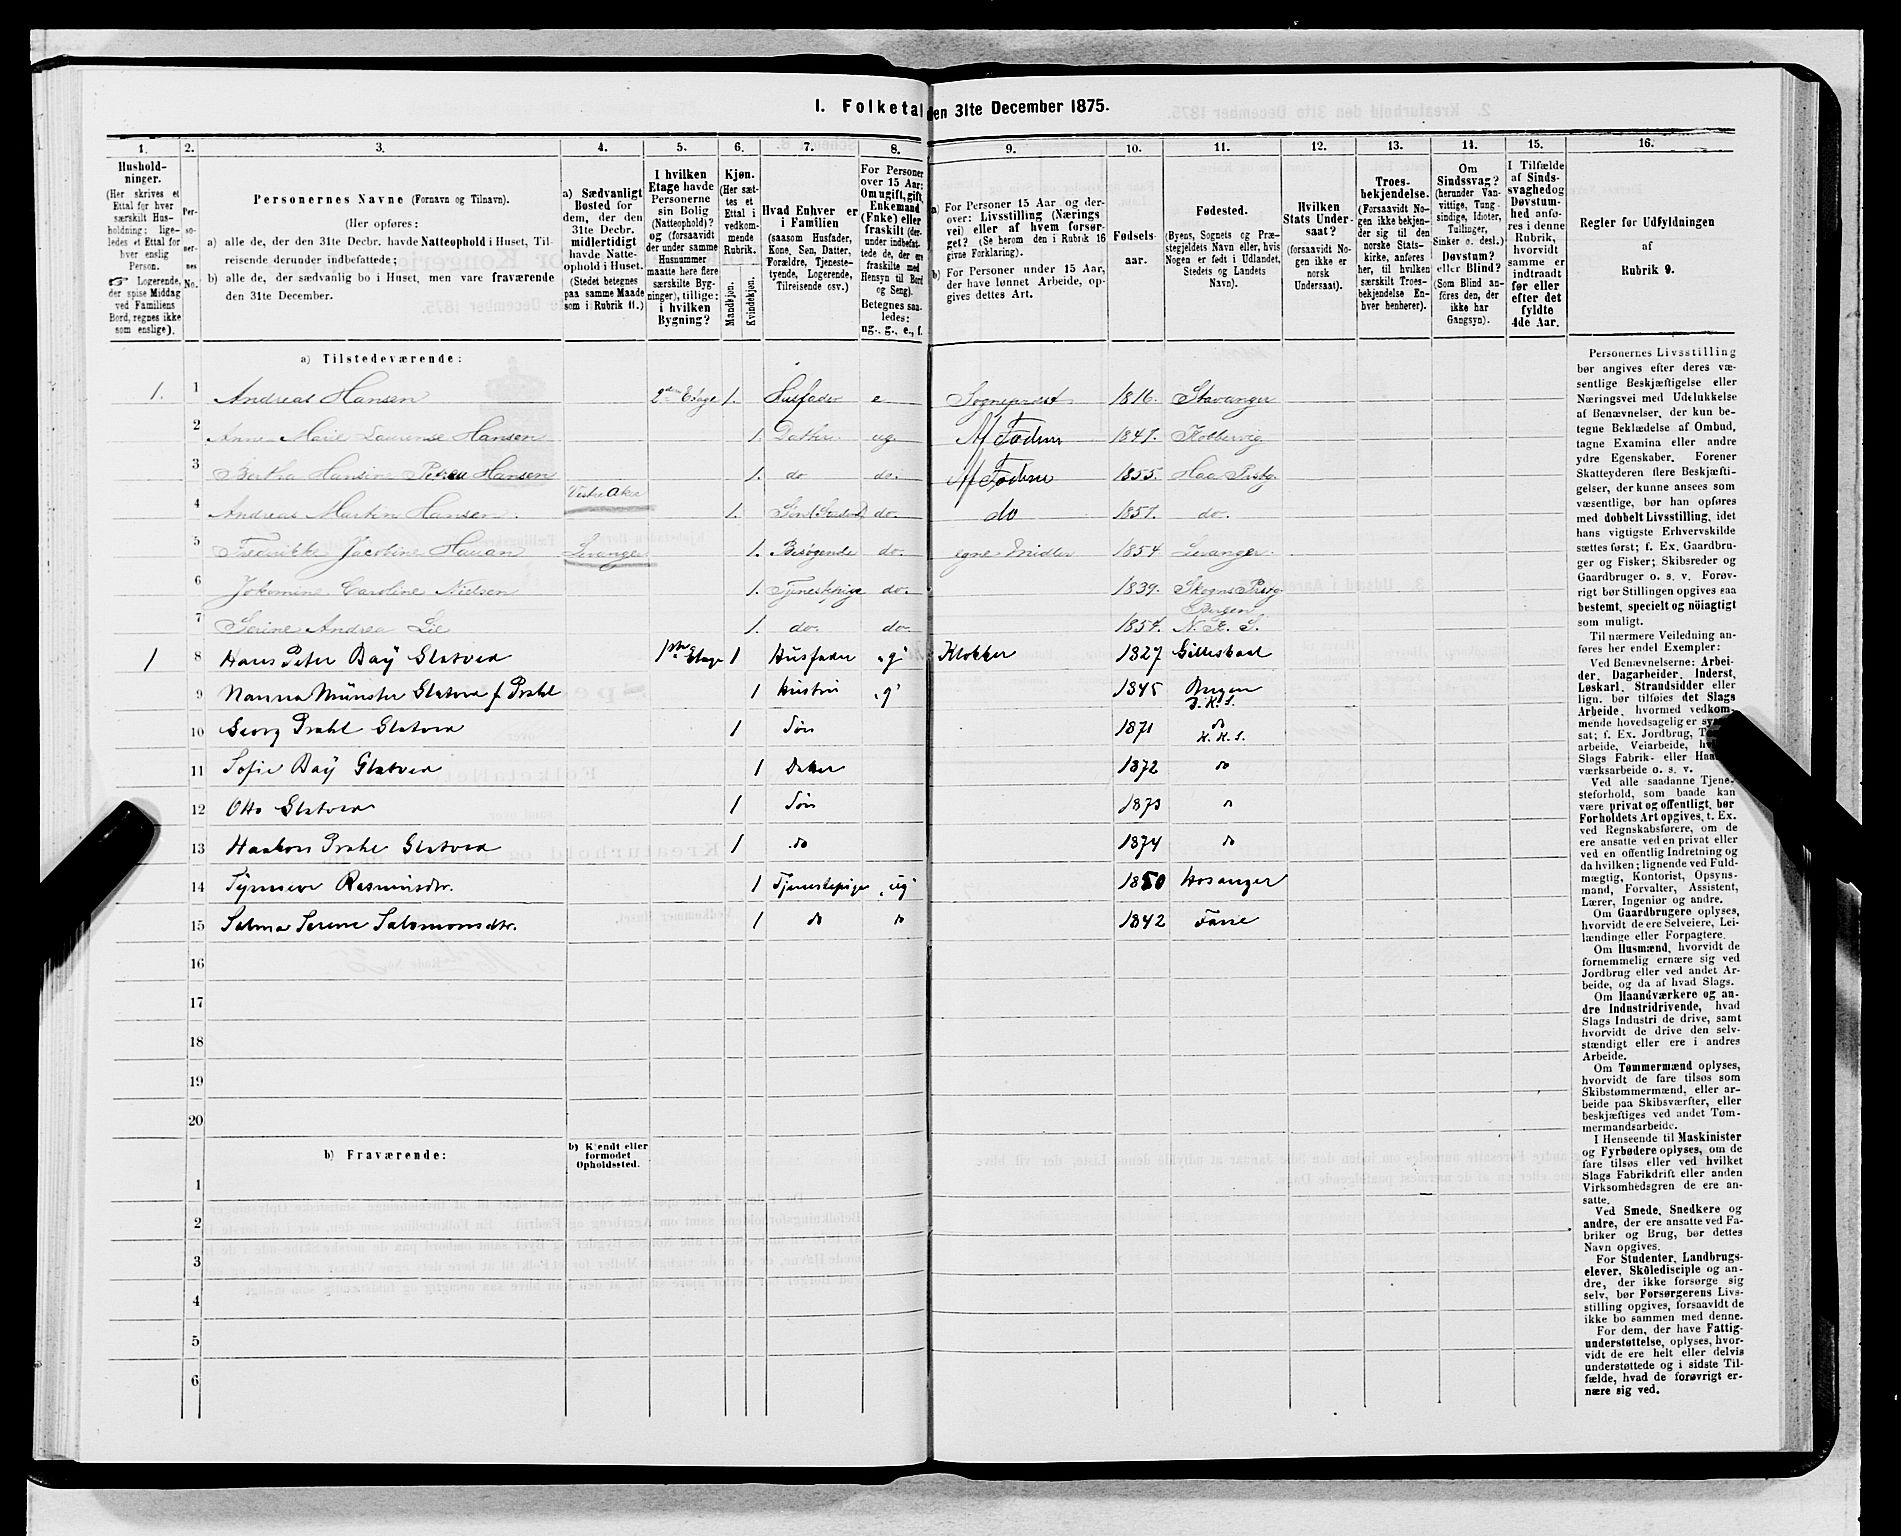 I. Folketal den 31te December 1875.
1. 2. 3. 4. 5. 6. 7. 8. 9. 10. 11. 12. 13. 14. 15. 16.
Hushold-
ninger.
(Her skrives et
Ettal for hver
særskilt Hus-
holdning; lige-
ledes et Ettal for
hver enslig
Person.
☞ Logerende,
der spise Middag
ved Familiens
Bord, regnes ikke
som enslige).
Per-
so-
ner-
nes
No.
Personernes Navne (Fornavn og Tilnavn).
(Her opføres:
a) alle de, der den 31te Decbr. havde Natteophold i Huset, Til-
reisende derunder indbefattede;
b) alle de, der sædvanlig bo i Huset, men vare fraværende
den 31te December.
a) Sædvanligt
Bosted for
dem, der den
31te Decbr.
midlertidigt
havde Natte-
ophold i Huset.
(Stedet betegnes
paa samme Maade
som i Rubrik 11.)
I hvilken
Etage havde
Personerne
sin Bolig
(Natteophold)?
og (forsaavidt
der under samme
Husnummer
maatte here flere
særskilte Byg-
ninger), tillige:
i hvilken
Bygning?
Kjøn.
(Her sæt-
tes et
Ettal i
vedkom-
mende
Rubrik.
Mandkjøn.
Kvindekjøn.
Hvad Enhver er
i Familien
(saasom Husfader,
Kone, Søn, Datter,
Forældre, Tjeneste-
tyende, Logerende,
Tilreisende osv.)
For Personer
over 15 Aar:
Om ugift, gift,
Enkemand
(Enke) eller
fraskilt (der-
under indbefat-
tede de, der ere
fraskilte med
Hensyn til Bord
og Seng).
Betegnes saa-
ledes:
ug., g., e., f.
a) For Personer 15 Aar og der-
over: Livsstilling (Nærings
vei) eller af hvem forsør-
get? (Se herom den i Rubrik 16
givne Forklaring).
b) For Personer under 15 Aar,
der have lønnet Arbeide, op-
gives dettes Art.
Fødsels-
aar.
Fødested.
(Byens, Sognets og Præ-
stegjeldets Navn eller, hvis
Nogen er født i Udlandet,
Stedets og Landets
Navn).
Hvilken
Stats Under-
saat?
(forsaavidt No-
gen ikke er
norsk
Undersaat).
Troes-
bekjendelse.
(Forsaavidt No-
gen ikke bekjen-
der sig til den
norske Stats-
kirke, anføres
her, til hvilken
særskilt Troes-
bekjendelse En-
hver henhører).
Om
Sindssvag?
(herunder Van-
vittige, Tung-
sindige, Idioter,
Tullinger,
Sinker o. desl.)
Døvstum?
eller Blind?
(Som Blind an-
føres den, der
ikke har
Gangsyn).
I Tilfælde
af Sinds-
svaghed og
Døvstum-
hed anfø-
res i denne
Rubrik,
hvorvidt
samme er
indtraadt
før eller
efter det
fyldte
4de Aar.
Regler før Udfyldningen
af
Rubrik 9.
a) Tilstedeværende:
1. 1 Andreas Hansen 2den Etage 1. Husfader e Sogneprest 1816. Stavanger
2 Anne Marie Laurense Hansen 1. Datter ug. Af Faderen 1847. Kolbervig
3 Bertha Hansine Petrea Hansen 1. do do. Af Faderen 1855. Haa Prstg.
4 Andreas Martin Hansen. Vestre Aker 1. do. do 1857. do.
5 Frederikke Jacobine Hauan Levanger 1. Besøgende do. egne Midler 1854 Levanger
6 Jokomine Caroline Nielsen 1. Tjenestepige do. 1839. Skogns Prstg.
7 Serine Andrea Lie 1. do. do. 1857. Bergen N. K. S.
1 8 Hans Peter Bay Glatved 1ste Etage 1 Husfader "g" Klokker 1827 Gilleskaal
9 Nanna Münster Glatved f Prahl 1 Hustru "g" 1845 Bergen D. K. S.
10 Georg Prahl Glatved 1 Søn 1871 do K. K. S.
11 Sofie Bay Glatved 1 Datter 1872 do
12 Otto Glatved 1 Søn 1873 do
13 Haakon Prahl Glatved 1 do 1874 do
14 Rasmusdtr. 1 Tjenestepige "ug" 1850 Hosanger
15 Salmonsdtr. 1 do do 1842 Fane
16
17
18
19
20
b) Fraværende:
b) Kjendt eller
formodet
Opholdssted.
1
2
3
4
5
6
Personernes Livsstilling
bør angives efter deres væ-
sentlige Beskjæftigelse eller
Næringsvei med Udelukkelse
af Benævnelser, der kun be-
tegne Beklædelse af Ombud,
tagne Examina eller andre
ydre Egenskaber. Forener
Skatteyderen flere Beskjæfti-
gelser, der kunne ansees som
væsentlige, bør han opføres
med dobbelt Livsstilling, idet
hans vigtigste Erhvervskilde
sættes først; f. Ex. Gaardbru-
ger og Fisker; Skibsreder og
Gaardbruger o. s. v. Forøv-
rigt bør Stillingen opgives saa
bestemt, specielt og nöiagtigt
som muligt.
Til nærmere Veiledning an-
føres her endel Exempler:
Ved Benævnelserne: Arbei-
der, Dagarbeider, Inderst,
Løskarl, Strandsidder eller
lign. bør tilføies det Slags
Arbeide, hvormed vedkom-
mende hovedsagelig er
sat; f. Ex. Jordbrug,
arbeide, Veiarbeide,
Slags Fabrik- eller
værksarbeide o. s. v.
Ved alle saadanne Tjene-
steforhold, som baade kan
være privat og offentligt, bør
Forholdets Art opgives, t. Ex.
ved Regnskabsførere, om de
ere ansatte ved en privat eller
ved en offentlig Indretning og
da hvilken; lignende ved Fuld-
mægtig, Kontorist, Opsyns-
mand, Forvalter, Assistent,
Lærer, Ingeniør og andre.
Om Gaardbrugere oplyses,
hvorvidt de ere Selveiere, Lei-
lændinge eller Forpagtere.
Om Husmænd, hvorvidt de
fornemmelig ernære sig ved
Jordbrug eller ved andet Ar-
beide, og da af hvad Slags.
Om Haandværkere og an-
dre Industridrivende, hvad
Slags Industri de drive, samt
hvorvidt de drive den selv-
stændigt eller ere i andres
Arbeide.
Om Tømmermænd oplyses,
hvorvidt de fare tilsøs som
Skibstømmermænd, eller ar-
beide paa Skibsværfter, eller
beskjæftiges ved andet Tøm-
mermandsarbeide.
I Henseende til Maskinister
og Fyrbødere oplyses, om de
fare tilsøs eller ved hvilket
Slags Fabrikdrift eller anden
Virksomhedsgren de ere an-
satte.
Ved Smede, Snedkere og
andre, der ere ansatte ved Fa-
briker og Brug, bør dettes
Navn opgives.
For Studenter, Landbrugs-
elever, Skoledisciple og an-
dre, der ikke forsørge sig
selv, bør Forsørgerens Livs-
stilling opgives, forsaavidt de
ikke bo sammen med denne.
For dem, der have Fattig-
understøttelse, oplyses, hvor-
vidt de ere helt eller delvis
understøttede og i sidste Til-
fælde, hvad de forøvrigt er-
nære sig ved.